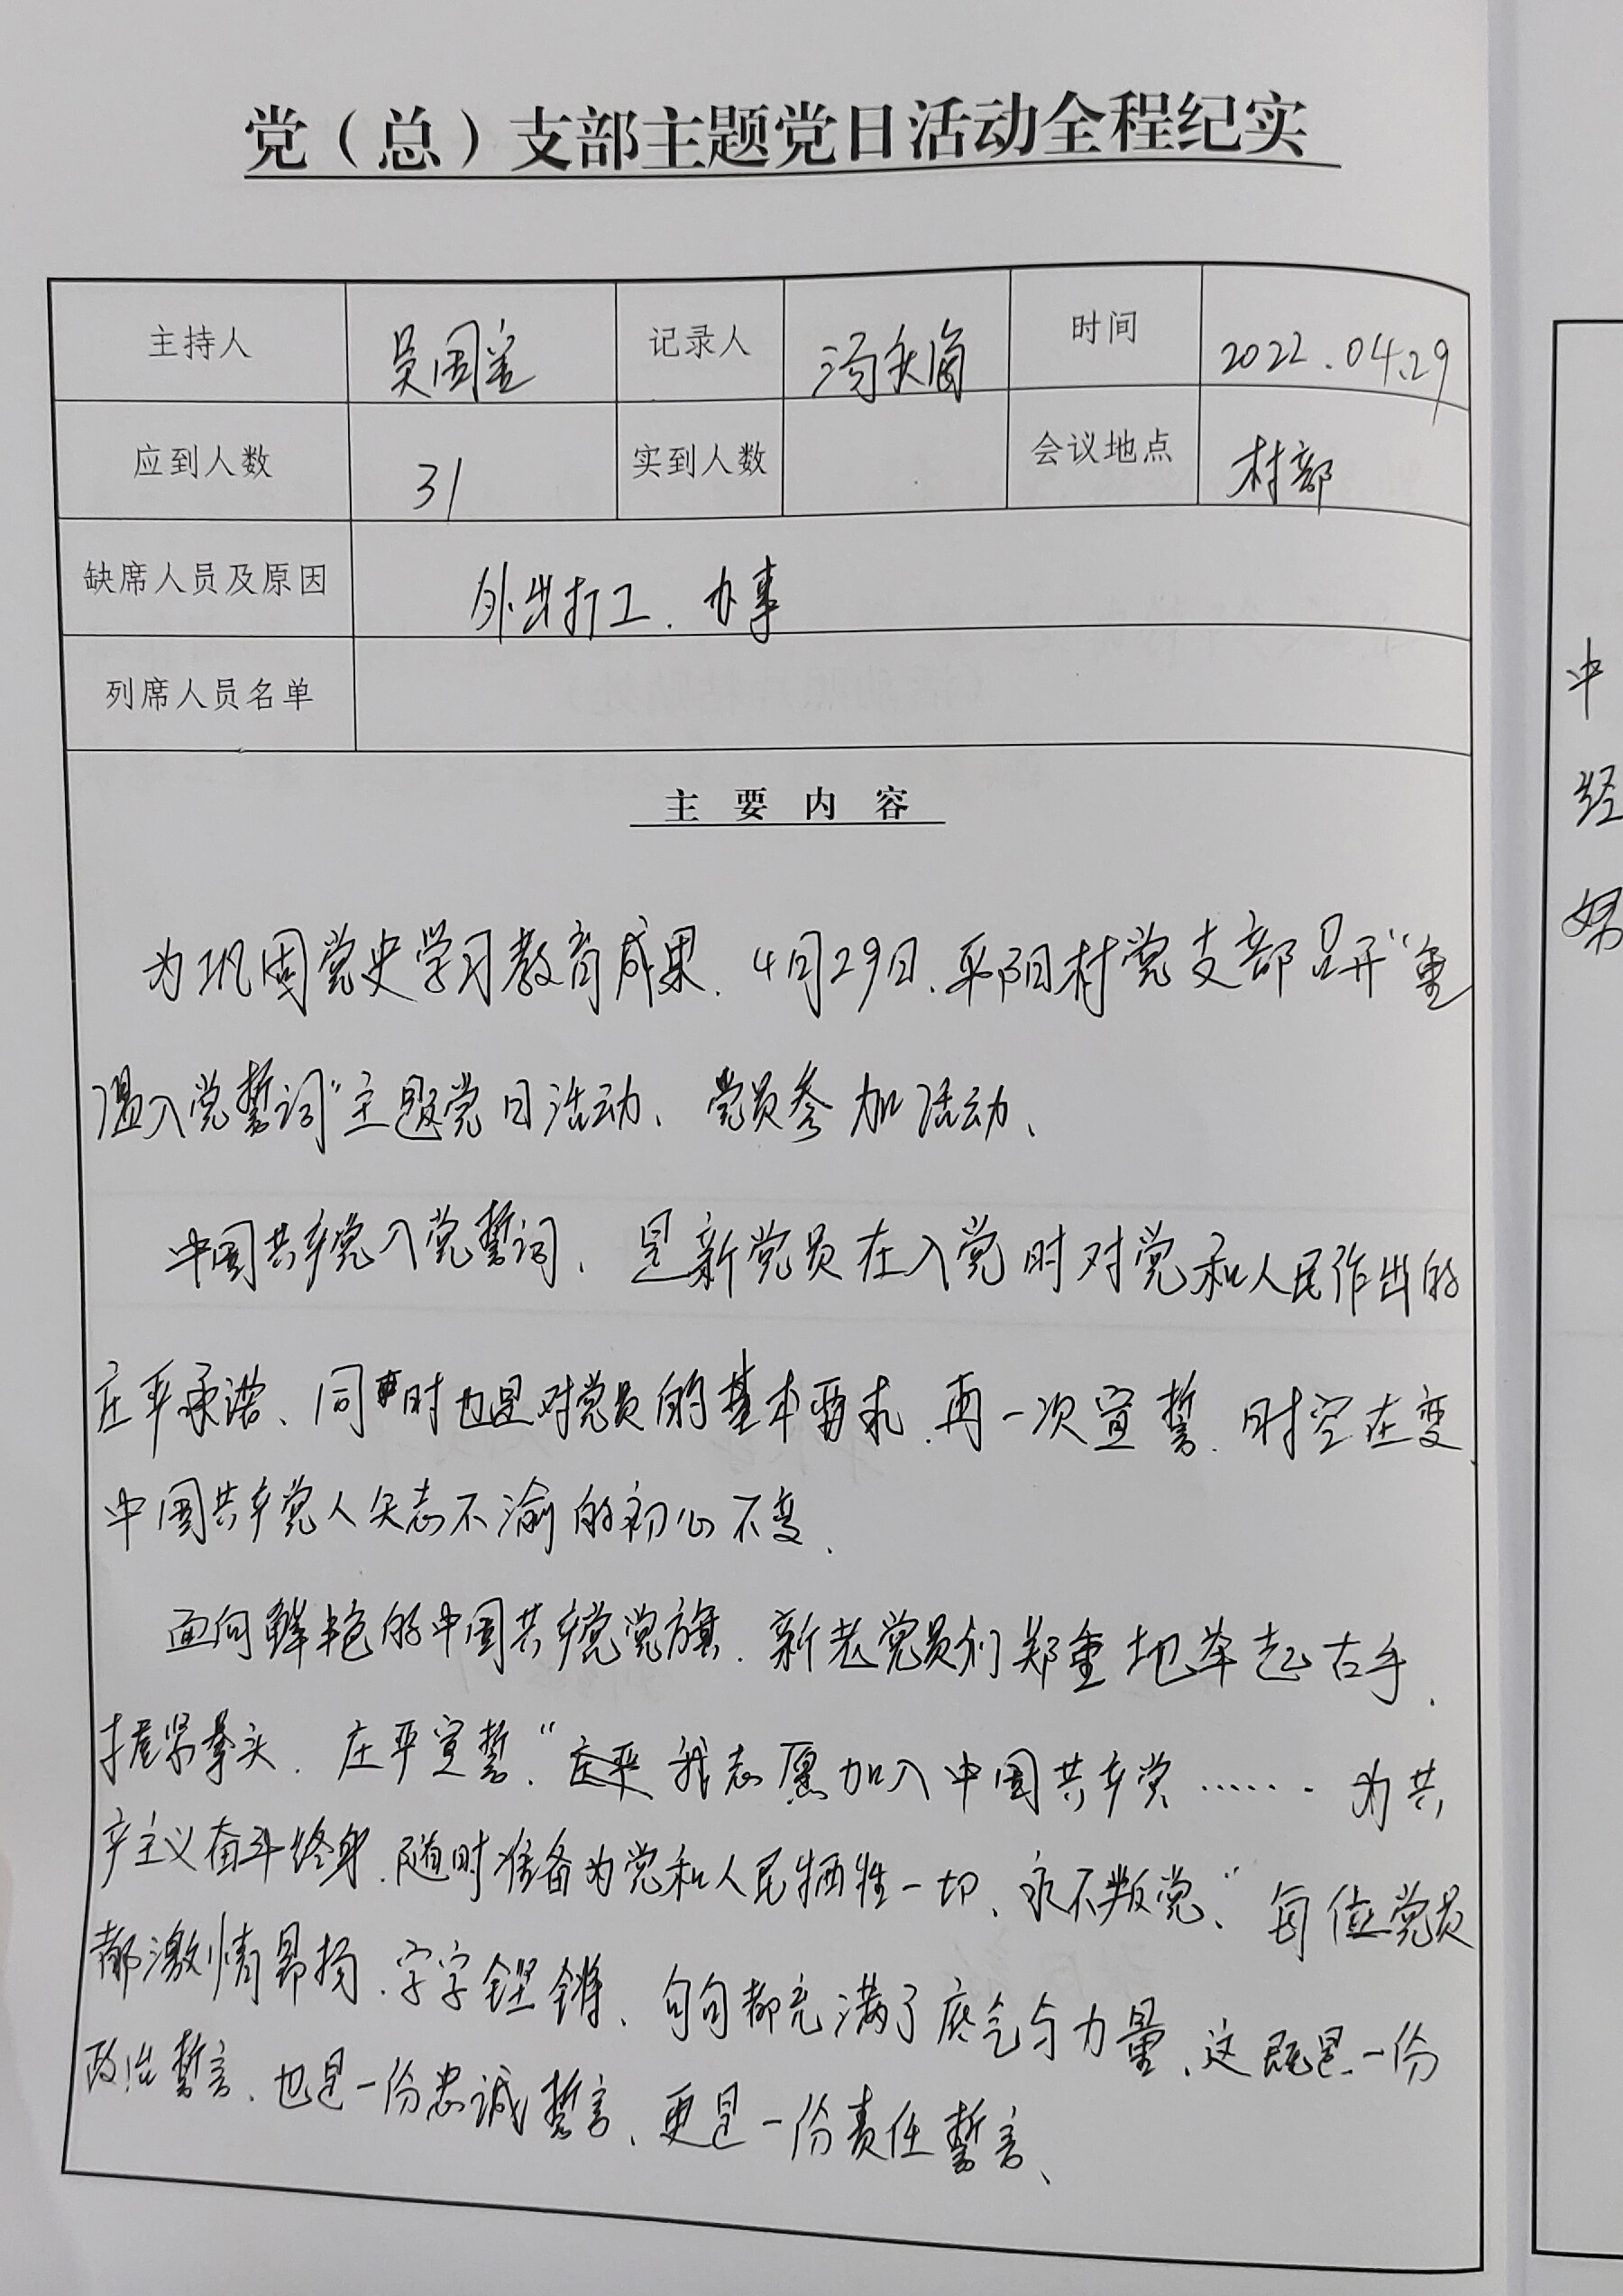 党（总）支部主题党日活动全程纪实
主持人 吴国金 记录人 汤 时间 2022.04.29
应到人数 31 实到人数 会议地点 村部
缺席人员及原因 外出打工、办事
列席人员名单
主要内容
为巩固党史学习教育成果、4月29日、平阳村党支部召开“重
温入党誓词”主题党日活动、党员参加活动、
中国共产党入党誓词、是新党员在入党时对党和人民作出的
庄严承诺、同时也是对党员的基本要求、再一次宣誓、时空在变
中国共产党人矢志不渝的初心不变、
面向鲜艳的中国共产党党旗、新老党员们郑重地举起右手、
握紧拳头、庄严宣誓、“我志愿加入中国共产党……为共
产主义奋斗终身、随时准备为党和人民牺牲一切、永不叛党、”每位党员
都激情昂扬、字字铿锵、句句都充满了底气与力量、这既是一份
政治誓言、也是一份忠诚誓言、更是一份责任誓言、
中
经
努